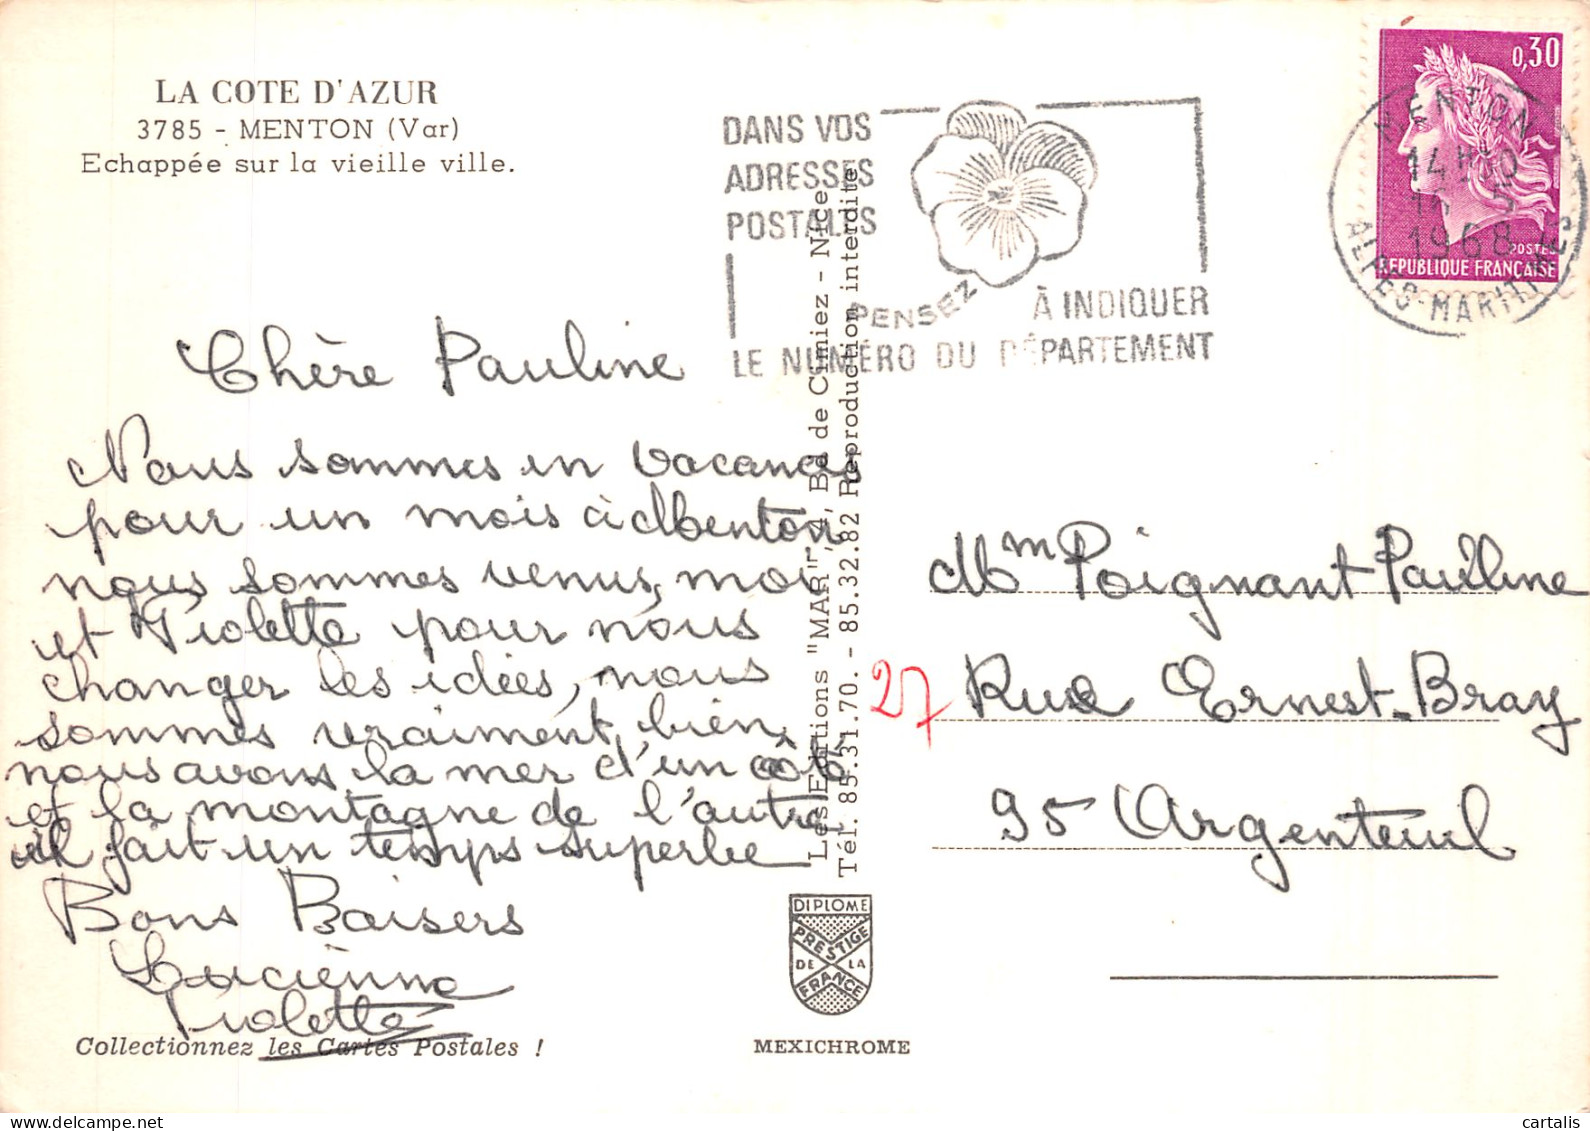 LA COTE D'AZUR
3785 - MENTON (Var)
Echappée sur la vieille ville.
DANS VOS
ADRESSES
POSTALES
PENSEZ
À INDIQUER
LE NUMÉRO DU DÉPARTEMENT
0,30
POSTES
REPUBLIQUE FRANÇAISE
MENTON
1968
ALPES-MARITIMES
Chère Pauline
Nous sommes en vacances
pour un mois à Menton
nous sommes venus, moi
et Violette pour nous
changer les idées, nous
sommes vraiment bien,
nous avons la mer d'un côté
et la montagne de l'autre
il fait un temps superbe
Bons Baisers
Lucienne
Violette
Les Editions "MAR", Bd de Cimiez - Nice
Tél. 85.31.70. - 85.32.82 Reproduction interdite
Mm Poignant Pauline
27 Rue Ernest-Bray
95 Argenteuil
DIPLOME
PRESTIGE
DE LA
FRANCE
Collectionnez les Cartes Postales !
MEXICHROME
cartalis